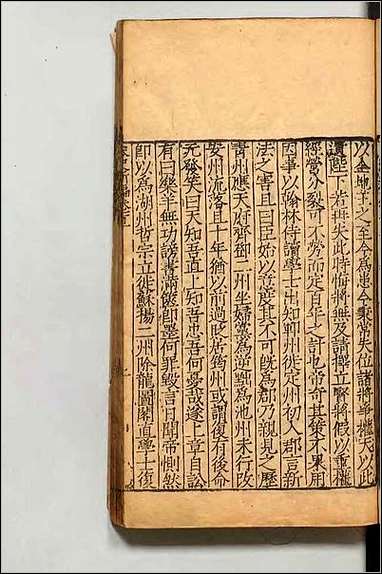 以全地予之至今為患今秉常失位諸將爭權天以此
遺陛下若再失此時悔將無及請擇立賢將假以重權
經營分裂可不勞而定百年之計也帝奇其策不果用
因事以翰林侍讀學士出知鄆州徙定州初入郡言新
法之害且曰臣始以意度其不可既為郡乃親見之歷
青州應天府齊鄧二州坐婦黨為逆黜為池州未行改
安州流落且十年猶以前過貶居筠州或謂復有後命
元發笑曰天知吾直上知吾忠吾何憂哉遂上章自訟
有曰樂羊無功謗書滿篋即墨何罪毀言日聞帝惻然
即以為湖州哲宗立徙蘇揚二州除龍圖閣直學士復